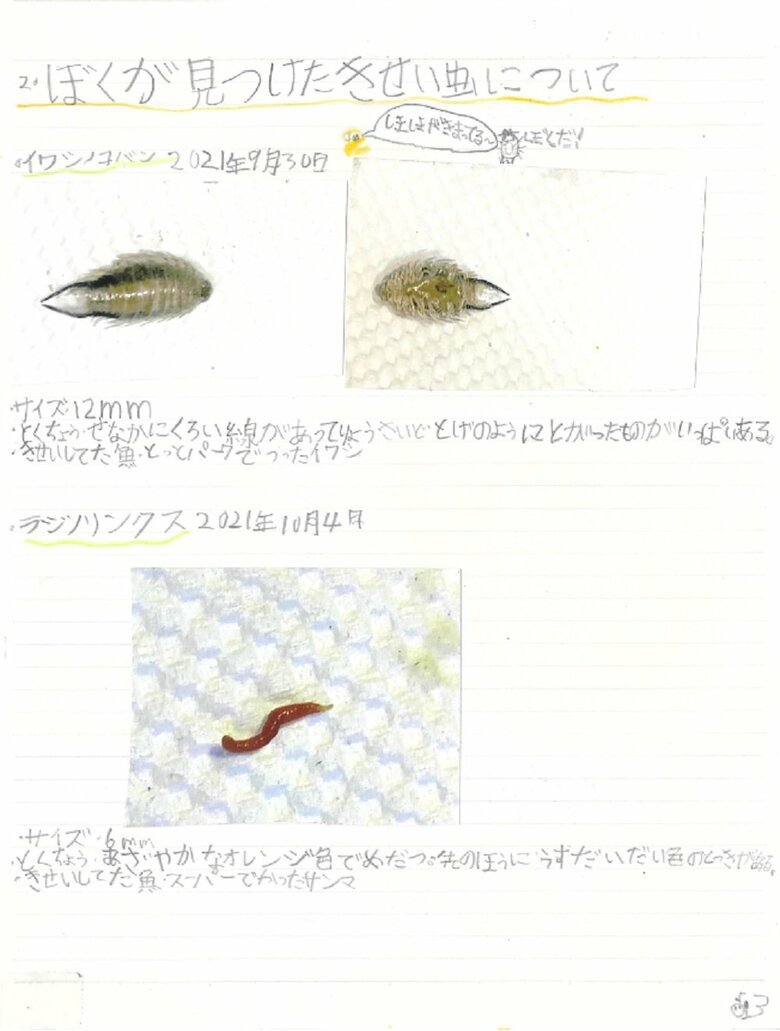 2. ぼくが見つけたきせい虫について
しましまがきまってる〜
ほんとだ!
・イワシノコバン 2021年9月30日
・サイズ・12mm
・とくちょう・せなかにくろい線があってりょうさいどとげのようにとがったものがいっぱいある。
・きせいしてた魚・とっとパークでつったイワシ
・ラジノリンクス 2021年10月4日
・サイズ・6mm
・とくちょう・あざやかなオレンジ色でめだつ。先のほうにうすだいだい色のとっきがある。
・きせいしてた魚・スーパーでかったサンマ
3